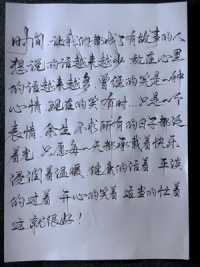 时间 让我们都成了有故事的人
想说的话越来越少 放在心里
的话越来越多 曾经的笑是一种
心情 现在的笑有时 只是一个
表情 余生 不求所有的日子都泛
着光 只愿每一天都承载着快乐
浸润着温暖 健康的活着 平淡
的过着 开心的笑着 适当的忙着
这就很好！